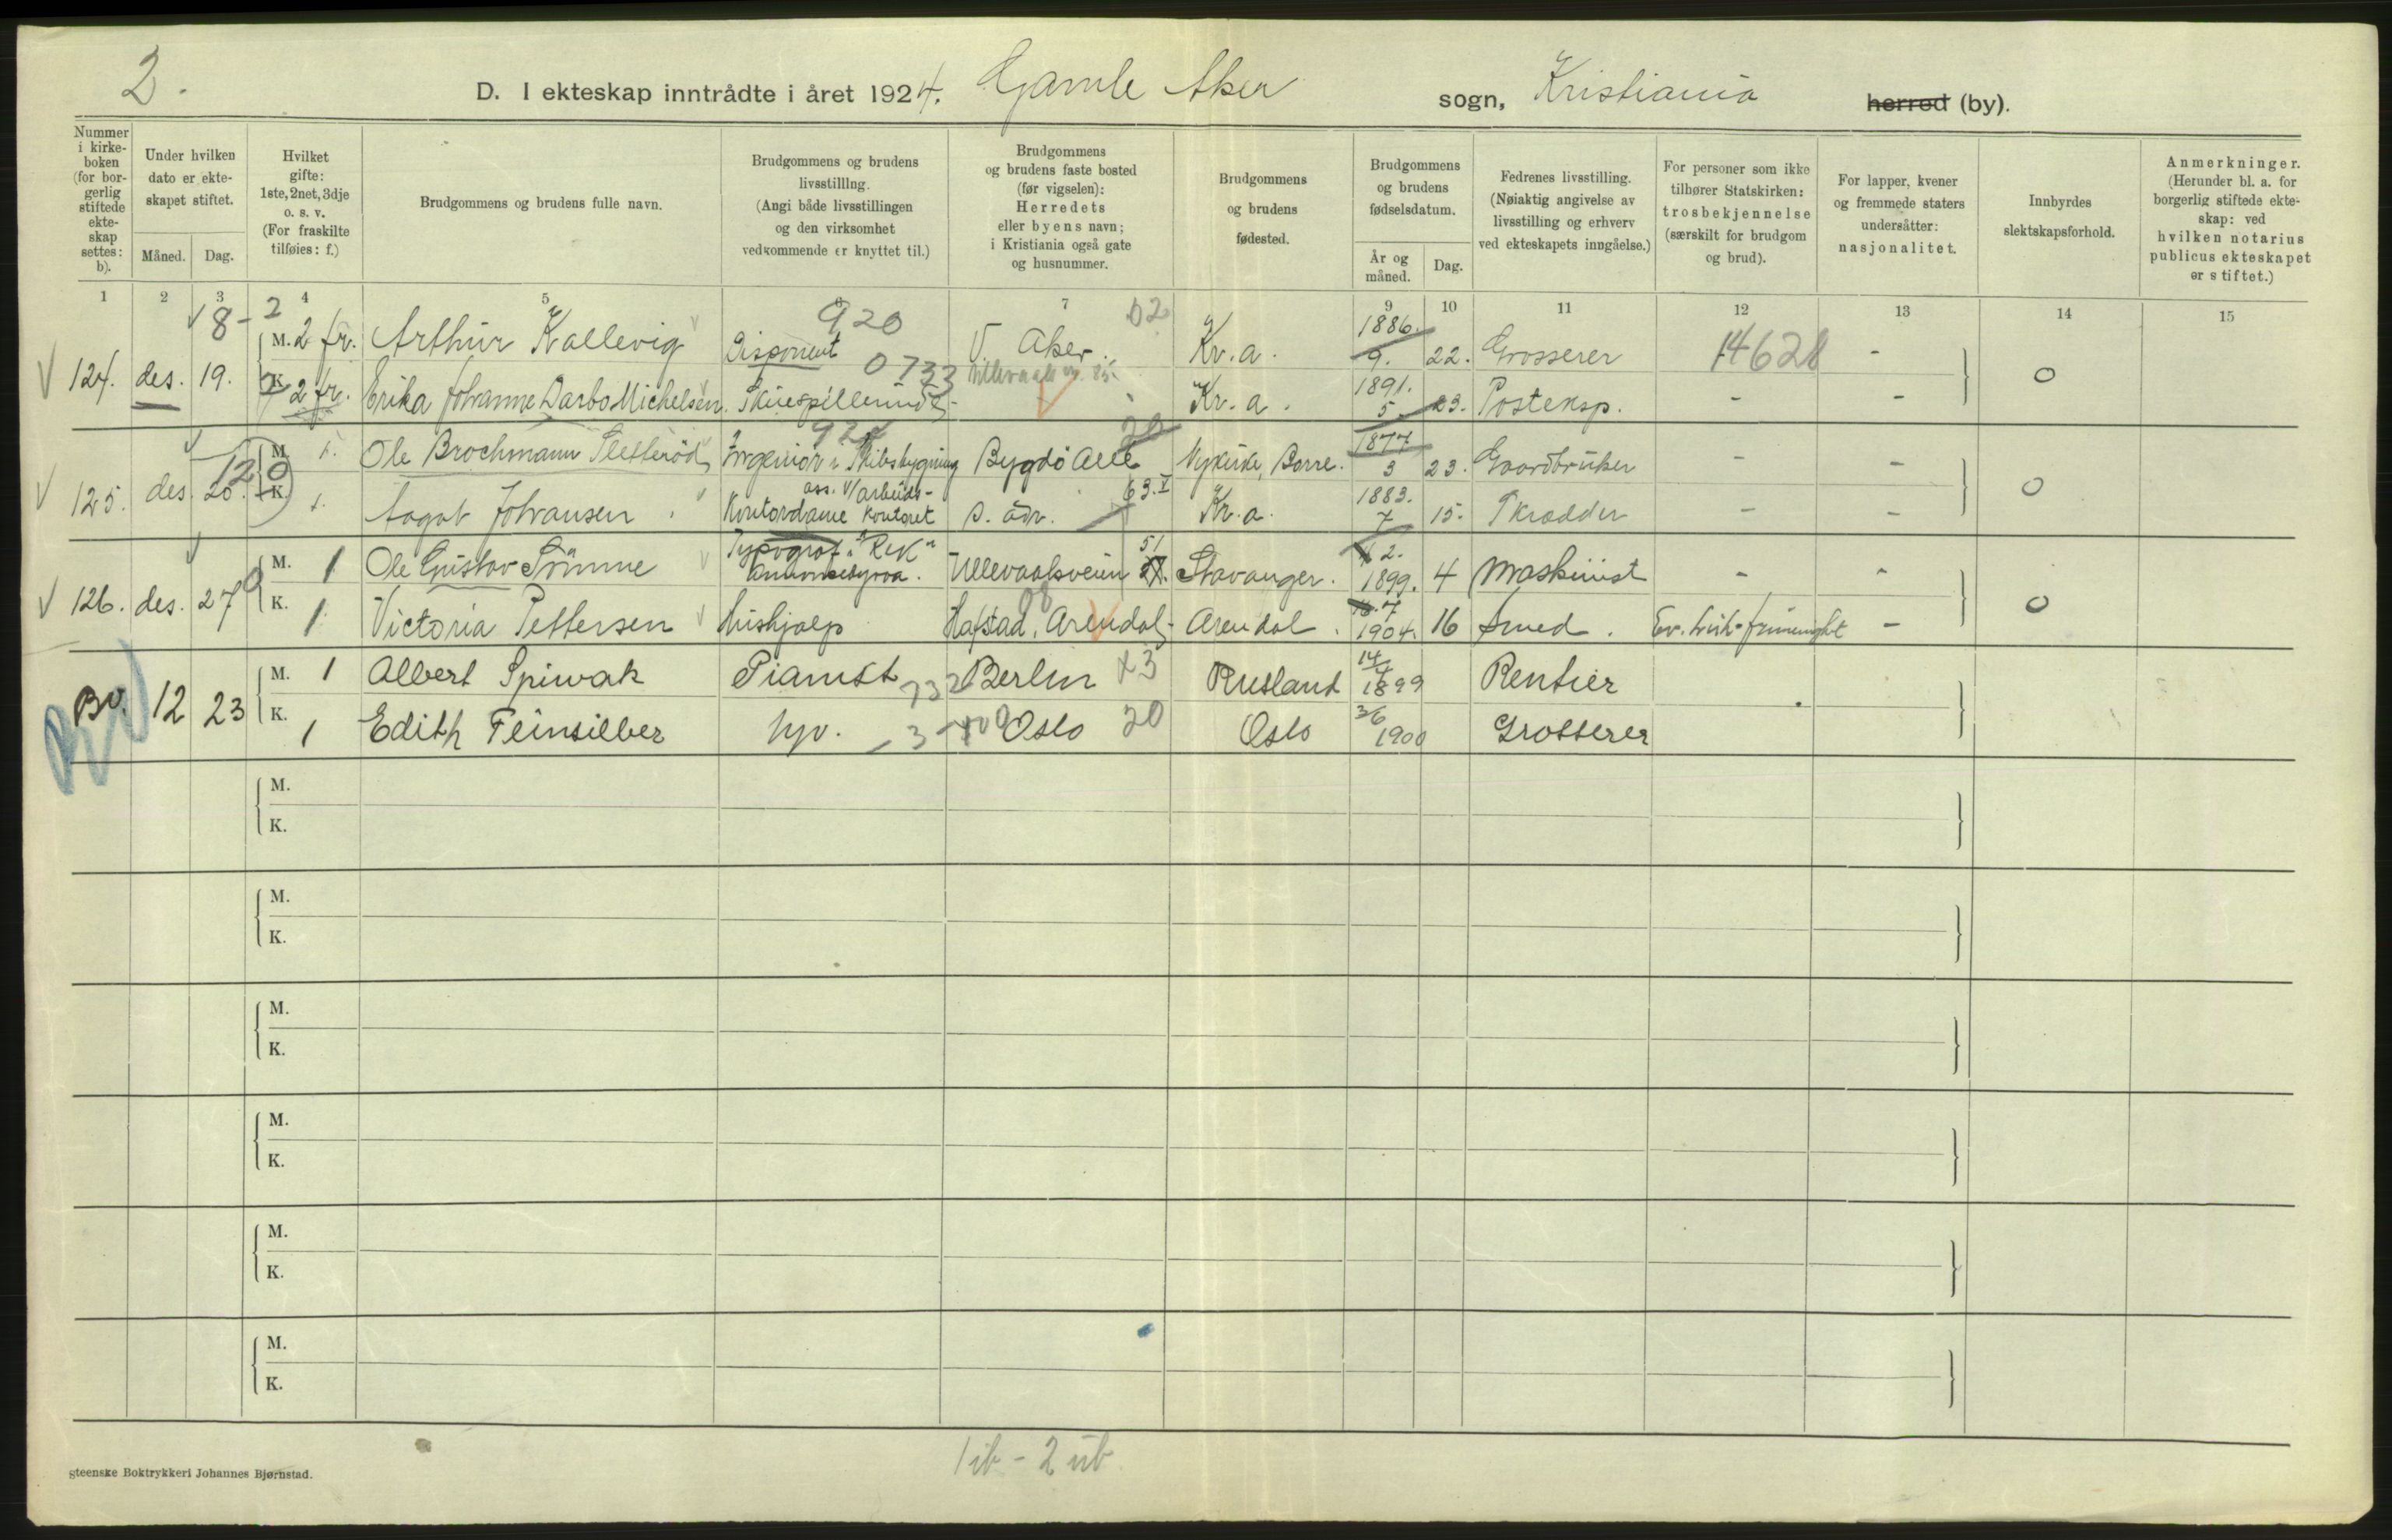 2.
D. I ekteskap inntrådte i året 1924. Gamle Aker sogn, Kristiania herred (by).
Nummer i kirkeboken (for borgerlig stiftede ekteskap settes: b).
Under hvilken dato er ekteskapet stiftet.
Måned. Dag.
Hvilket gifte: 1ste, 2net, 3dje o. s. v. (For fraskilte tilføies: f.)
Brudgommens og brudens fulle navn.
Brudgommens og brudens livsstilling. (Angi både livsstillingen og den virksomhet vedkommende er knyttet til.)
Brudgommens og brudens faste bosted (før vigselen): Herredets eller byens navn; i Kristiania også gate og husnummer.
Brudgommens og brudens fødested.
Brudgommens og brudens fødselsdatum.
År og måned. Dag.
Fedrenes livsstilling. (Nøiaktig angivelse av livsstilling og erhverv ved ekteskapets inngåelse.)
For personer som ikke tilhører Statskirken: trosbekjennelse (særskilt for brudgom og brud).
For lapper, kvener og fremmede staters undersåtter: nasjonalitet.
Innbyrdes slektskapsforhold.
Anmerkninger. (Herunder bl. a. for borgerlig stiftede ekteskap: ved hvilken notarius publicus ekteskapet er stiftet.)
1 2 3 4 5 7 9 10 11 12 13 14 15
8-2 920 02
M. 2 fr. Arthur Kallevig Disponent V. Aker. Kr.a. 1886. 9. 22. Grosserer 14628 -
124. des. 19. 0733 0
K. 2 fr. Erika Johanne Darbo Michelsen. Skuespillerinde Kr.a. 1891. 5. 23. Posteksp. - -
M. 1. Ole Brochmann Ingeniör i Skibsbygning Bygdö Allé Nykirke, Borre. 1877 3 23. Gaardbruker - -
125. des. 20. 120 0
K. 1. Aagot Johansen Kontordame ass. v/arbeids-kontoret s. adr. 63.I Kr.a. 1883. 7 15. Skrædder - -
M. 1 Ole Gustav Sömme Typograf i "Rek" Annoncebyraa. Ullevaalsveien 51 Stavanger. 2. 1899. 4 Maskinist - -
126. des. 27 0 0
K. 1 Victoria Pettersen Hushjælp Hafstad, Arendal Arendal. 7 1904. 16 Smed. Ev. luth. frimenight -
M. 1 Albert Spiwak Pianist 732 Berlin x3 Rusland 14/4 1899 Rentier
Bv. 12 23
K. 1 Edith Feinsilber hjv. Oslo 20 Oslo 3/6 1900 Grosserer
Bv
M.
K.
M.
K.
M.
K.
M.
K.
M.
K.
M.
K.
1 ib - 2 ub
steenske Boktrykkeri Johannes Bjørnstad.